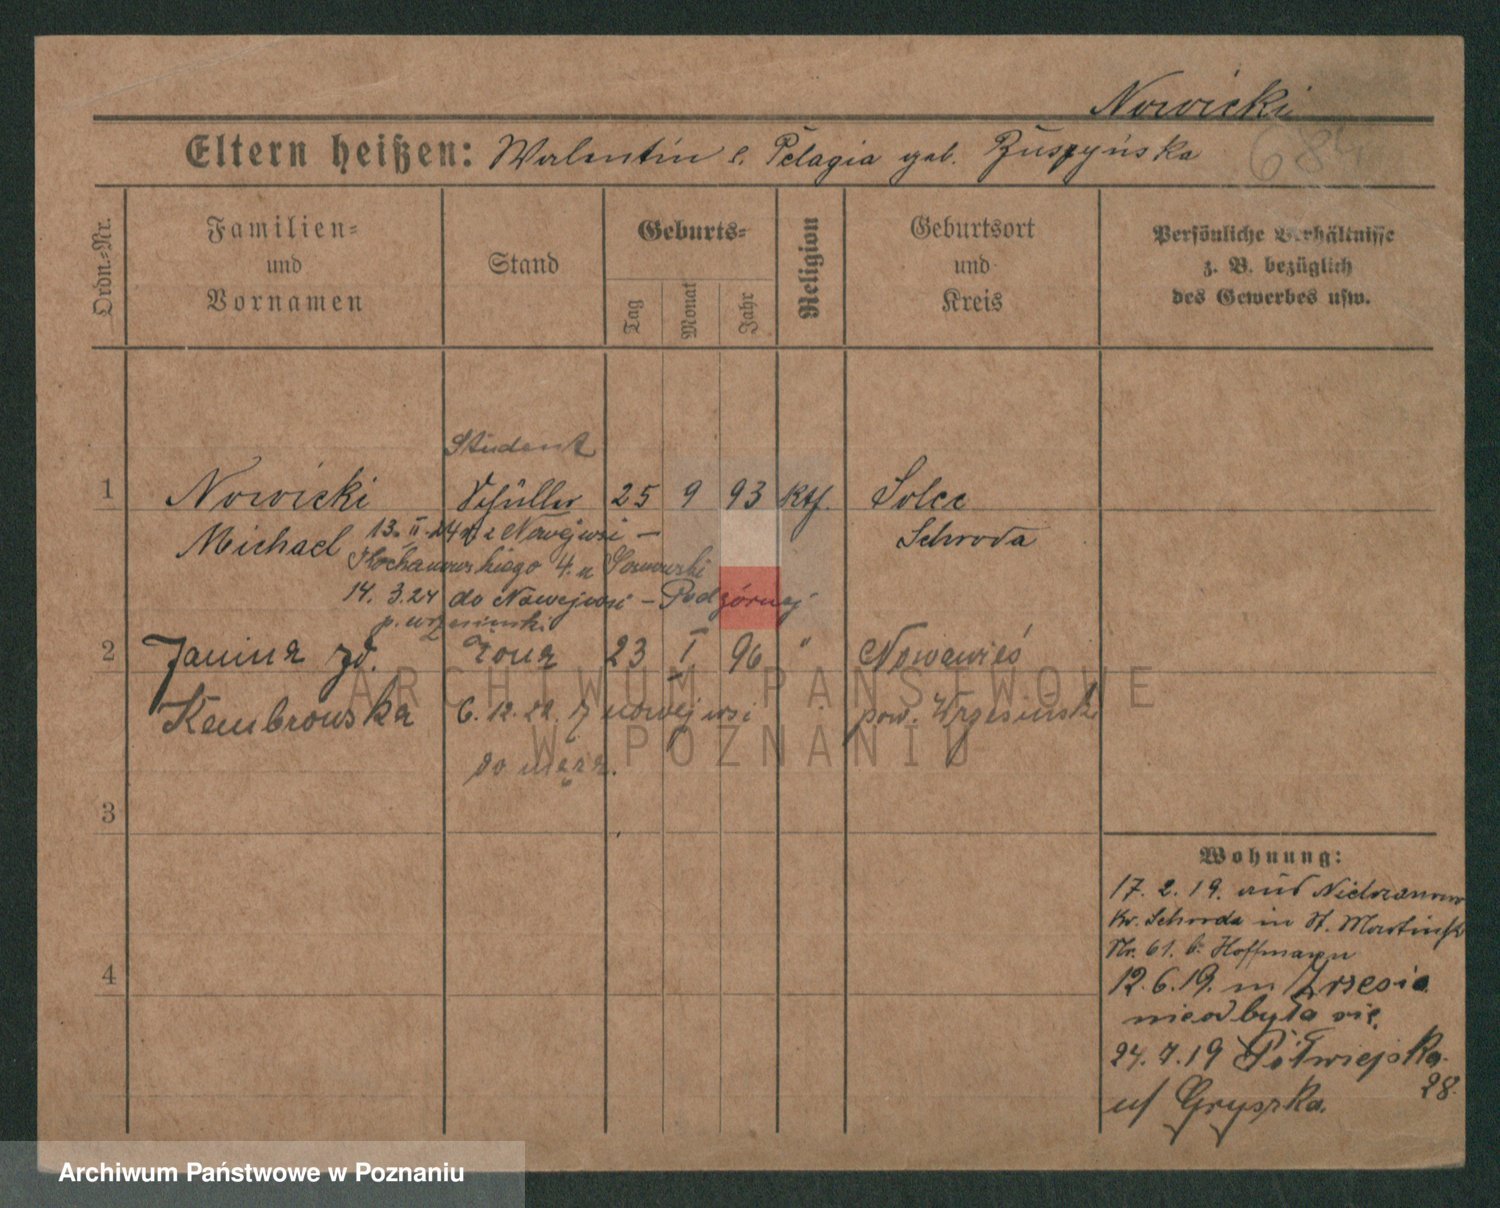 Nowicki
684
Eltern heißen: Walentin e. Pelagia geb. Zuszyńska
Ordn.-Nr.
Familien-
und
Vornamen
Stand
Geburts-
Tag
Monat
Jahr
Religion
Geburtsort
und
Kreis
Persönliche Verhältnisse
z. B. bezüglich
des Gewerbes usw.
Student
1 Nowicki Schüller 25 9 93 kth. Solec
Michael Schroda
13. II. 24 z Nowejwsi —
Kochanowskiego 4. u
14. 3. 24 do Nowejwsi – Podgórnej
p. wrzesiński
2 Janina zd. Żona 23 I 96 " Nowawieś
Kembrowska 6. 12. 22. z nowejwsi pow. Wrzesiński
do męża.
3
4
Wohnung:
17. 2. 19. aus
Kr. Schroda in St. Martinstr
Nr. 61. b. Hoffmann
12. 6. 19. m Wrzesia
nieodbyła się.
24. 7. 19 Półwiejska
28.
u/ Gryszka.
ARCHIWUM PAŃSTWOWE
W POZNANIU
Archiwum Państwowe w Poznaniu